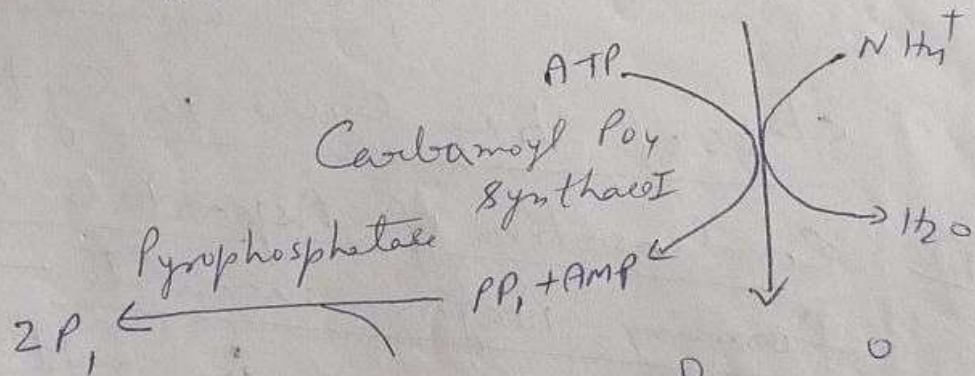 ATP
NH4+
Carbamoyl PO4
SynthaseI
H2O
Pyrophosphatase
PPi + AMP
2Pi
O